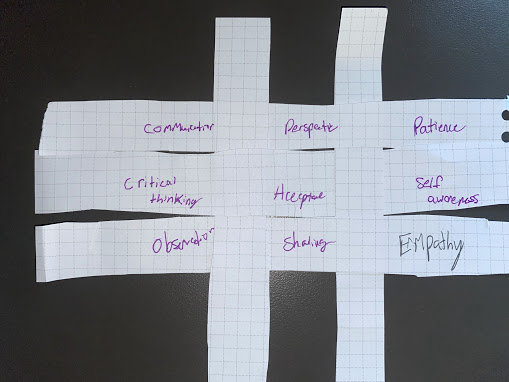 Communication
Perspective
Patience
Critical
thinking
Self
awareness
Observation
Sharing
Empathy